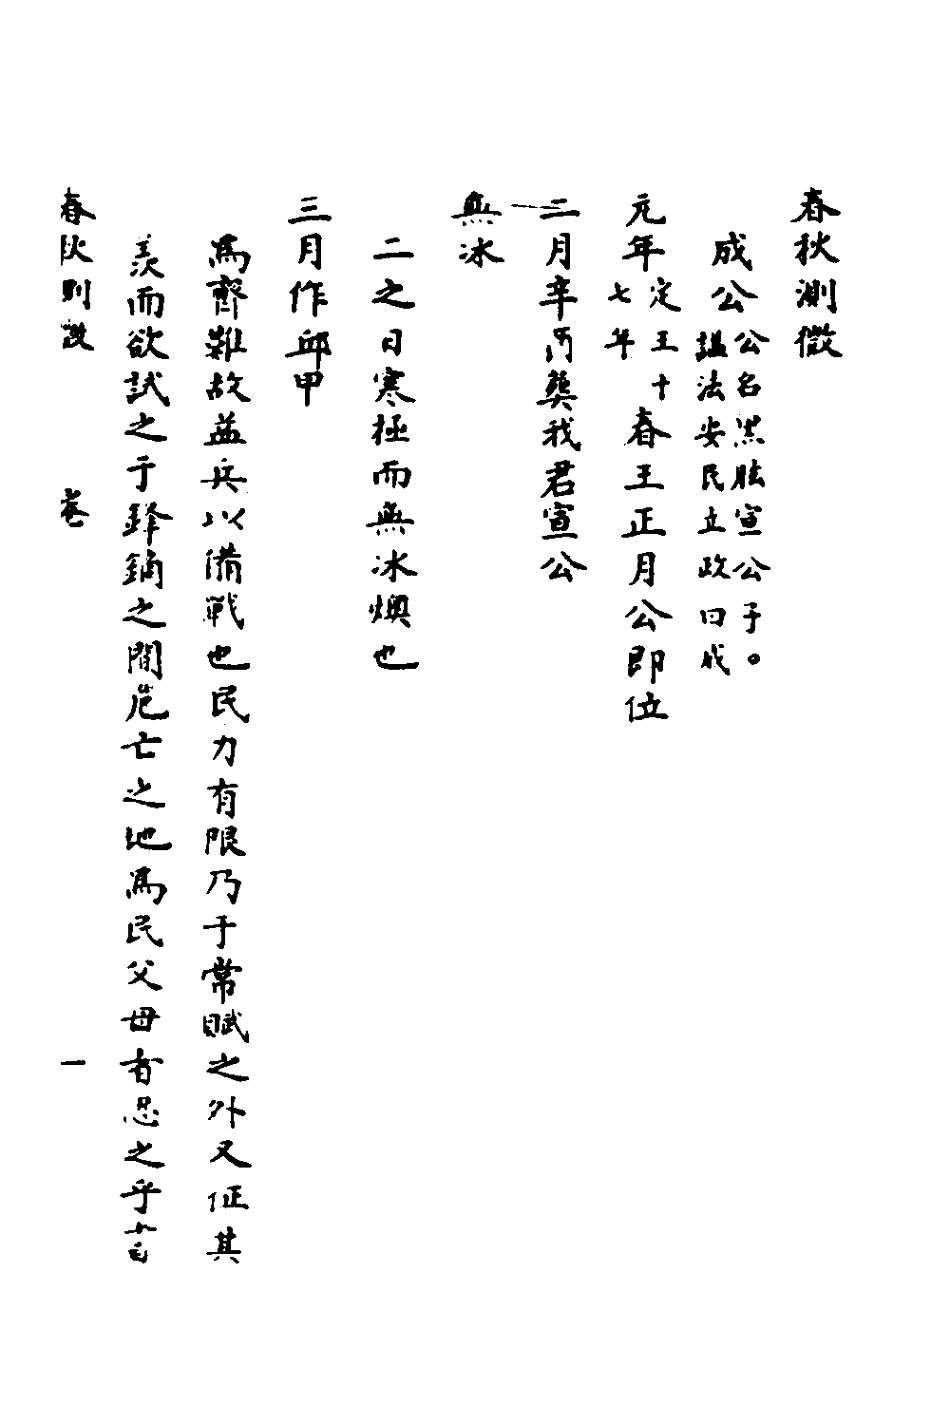 春秋測微
成公公名黑肱宣公子。諡法安民立政曰成
元年定王十七年春王正月公即位
二月辛酉葬我君宣公
無冰
二之日寒極而無冰燠也
三月作邱甲
爲齊難故益兵以備戰也民力有限乃于常賦之外又征其
羨而欲試之于鋒鏑之間危亡之地爲民父母者忍之乎
春秋測微 卷 一